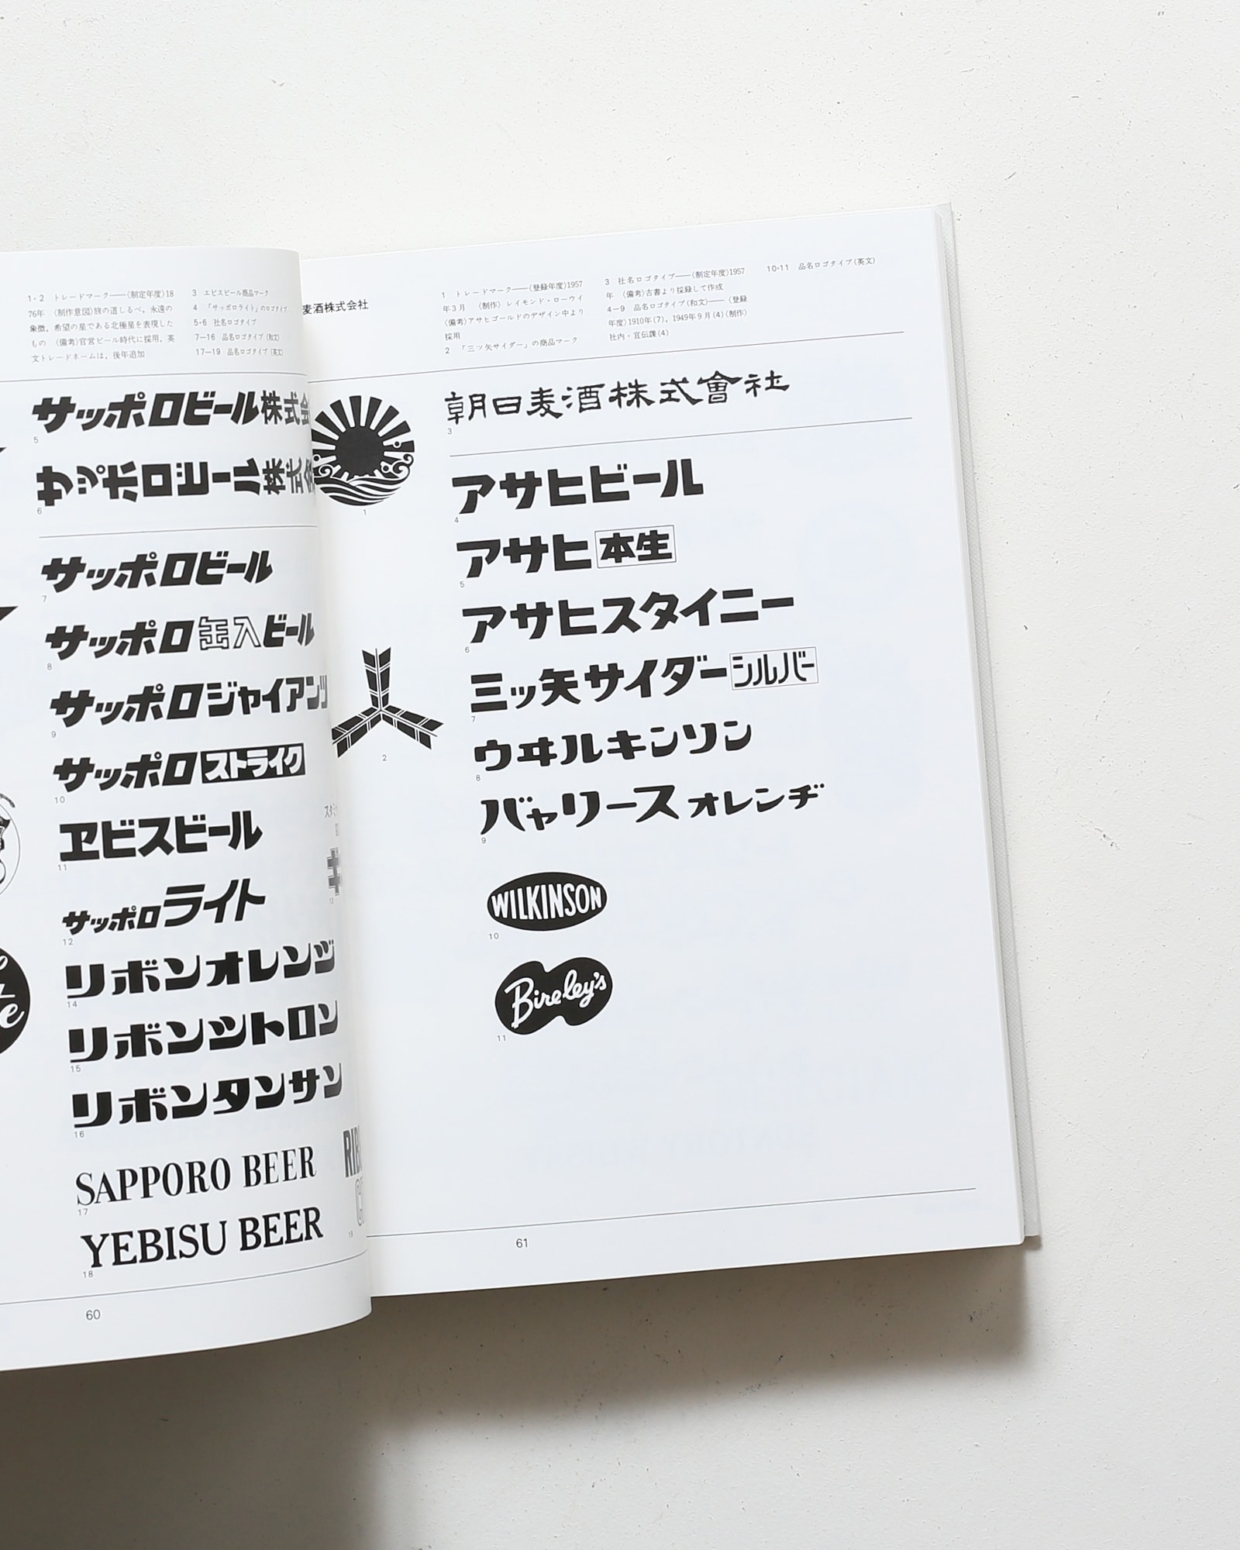 1・2　トレードマーク――(制定年度)18
76年　(制作意図)旅の道しるべ。永遠の
象徴、希望の星である北極星を表現した
もの　(備考)官営ビール時代に採用、英
文トレードネームは、後年追加
3　エビスビール商品マーク
4　「サッポロライト」のロゴタイプ
5・6　社名ロゴタイプ
7―16　品名ロゴタイプ(和文)
17―19　品名ロゴタイプ(英文)
サッポロビール株式会
5
サッポロビール株式会
6
サッポロビール
7
サッポロ缶入ビール
8
サッポロジャイアンツ
9
サッポロストライク
10
ヱビスビール
11
サッポロライト
12
リボンオレンジ
14
リボンシトロン
15
リボンタンサン
16
SAPPORO BEER
17
YEBISU BEER
18
60
麦酒株式会社
1　トレードマーク――(登録年度)1957
年3月　(制作)レイモンド・ローウイ
(備考)アサヒゴールドのデザイン中より
採用
2　「三ツ矢サイダー」の商品マーク
3　社名ロゴタイプ――(制定年度)1957
年　(備考)古書より採録して作成
4―9　品名ロゴタイプ(和文)――(登録
年度)1910年(7)、1949年9月(4)(制作)
社内・宣伝課(4)
10・11　品名ロゴタイプ(英文)
1
朝日麦酒株式會社
3
アサヒビール
4
アサヒ本生
5
アサヒスタイニー
6
2
三ッ矢サイダーシルバー
7
ウヰルキンソン
8
バャリースオレンヂ
9
WILKINSON
10
Bireley's
11
61